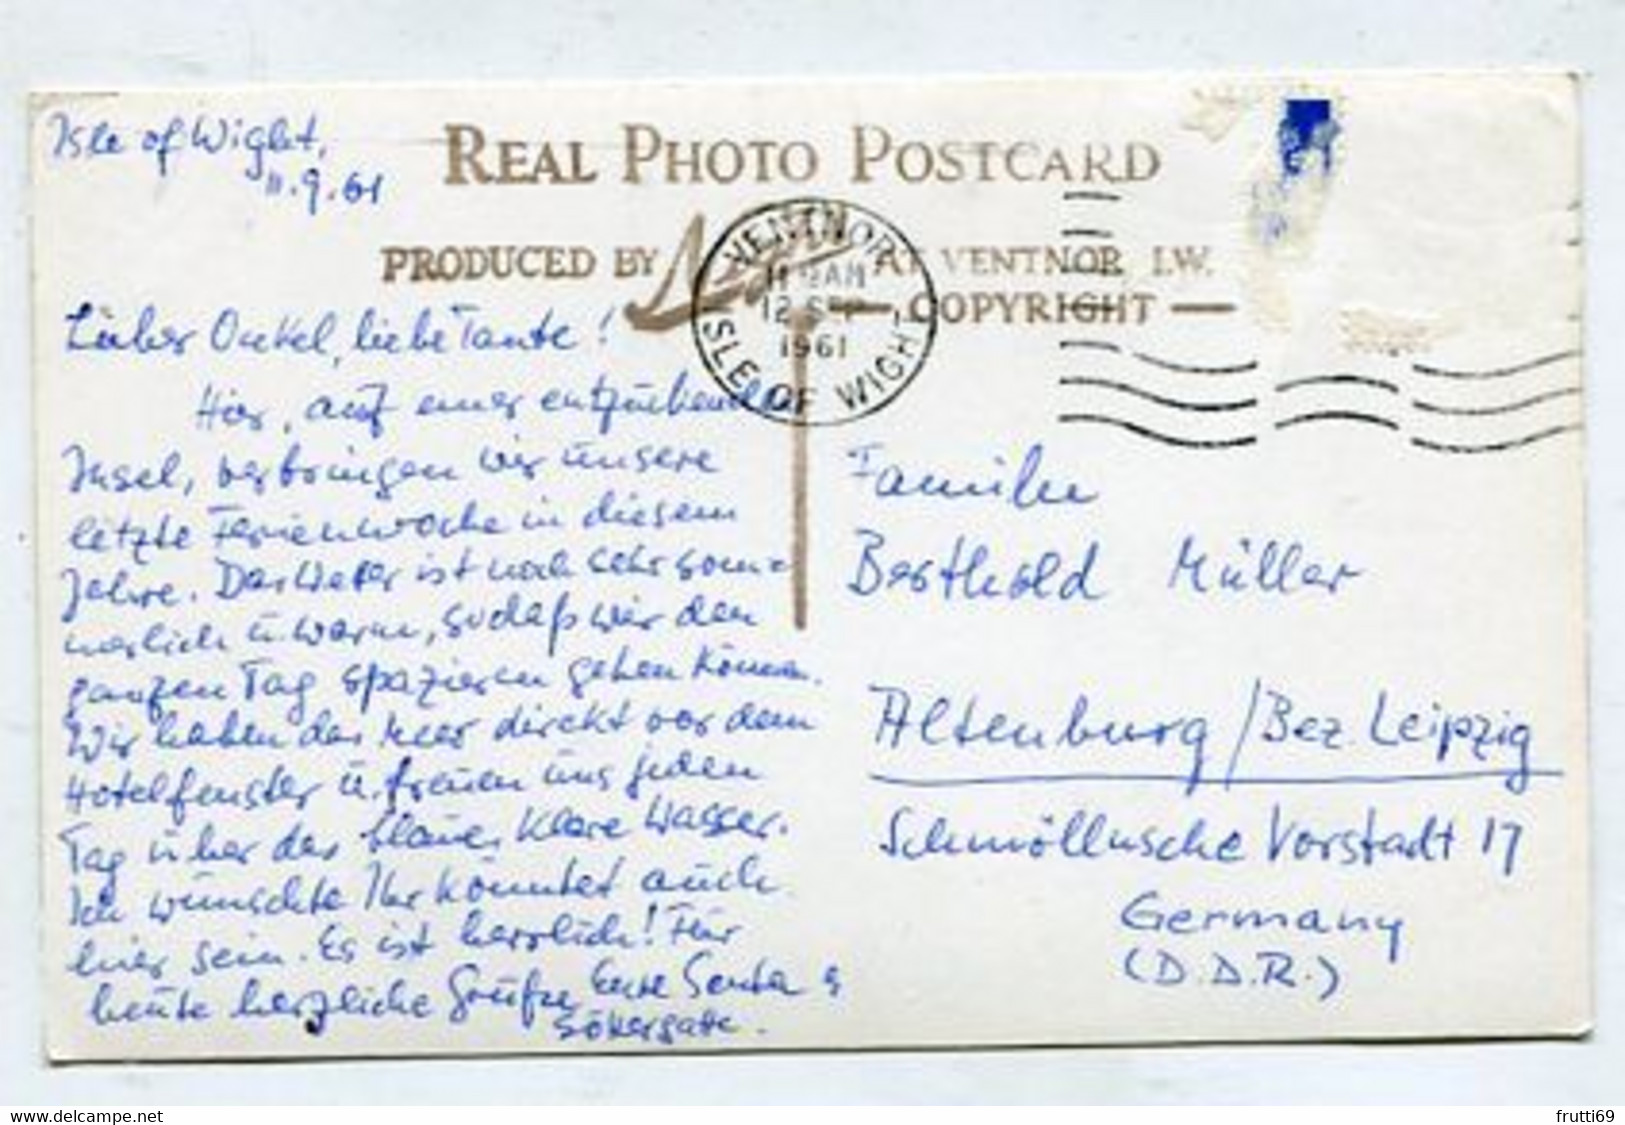 Isle of Wight,
11.9.61
REAL PHOTO POSTCARD
PRODUCED BY
AT VENTNOR I.W.
COPYRIGHT
VENTNOR
AM
12 SEP
1961
ISLE OF WIGHT
Lieber Onkel, liebe Tante!
Hier, auf einer entzückenden
Insel, verbringen wir unsere
letzte Ferienwoche in diesem
Jahre. Das Wetter ist noch sehr som=
merlich u. warm, sodaß wir den
ganzen Tag spazieren gehen können.
Wir haben das Meer direkt vor dem
Hotelfenster u. freuen uns jeden
Tag über das blaue, klare Wasser.
Ich wünschte Ihr könntet auch
hier sein. Es ist herrlich! Für
heute herzliche Grüße Eure Senta
Familie
Berthold Müller
Altenburg / Bez. Leipzig
Schmöllnsche Vorstadt 17
Germany
(D.D.R.)
delcampe.net
frutti69